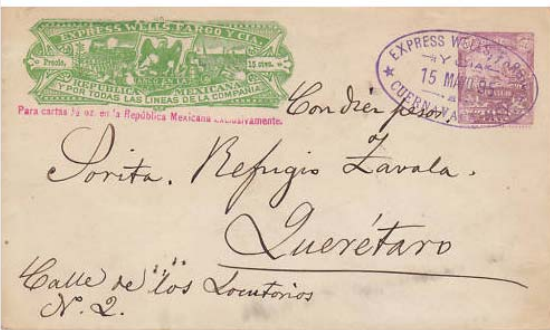 EXPRESS WELLS FARGO Y CIA.
Precio, 15 ctvs.
REPUBLICA MEXICANA
Y POR TODAS LAS LINEAS DE LA COMPAÑIA
Para cartas ½ oz. en la República Mexicana exclusivamente.
EXPRESS WELLS FARGO
Y CIA
15 MAYO
CUERNAVACA
Con diez pesos,
Sorita. Refugio Zavala.
Querétaro
Calle de los Locutorios
N. 2.